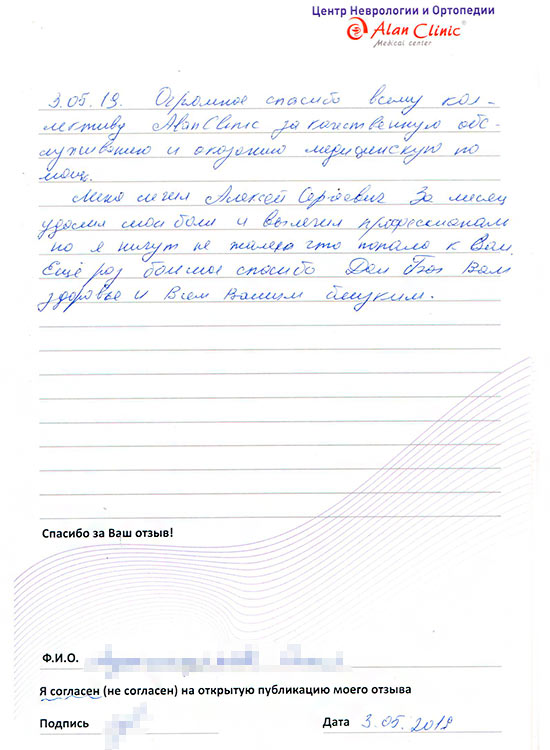 Центр Неврологии и Ортопедии
Alan Clinic®
Medical center
3.05.19. Огромное спасибо всему кол-
лективу AlanClinic за качественную обс-
луживанию и оказанию медицинскую по
мощь.
Меня лечил Алексей Сергеевич За месяц
удалил мои боли и вылечил професиональ
но я ничут не жалею что попала к Вам.
Ещё раз большое спасибо Дай Бог Вам
здоровье и Всем Вашим близким.
Спасибо за Ваш отзыв!
Ф.И.О.
Я согласен (не согласен) на открытую публикацию моего отзыва
Подпись Дата 3.05.2019